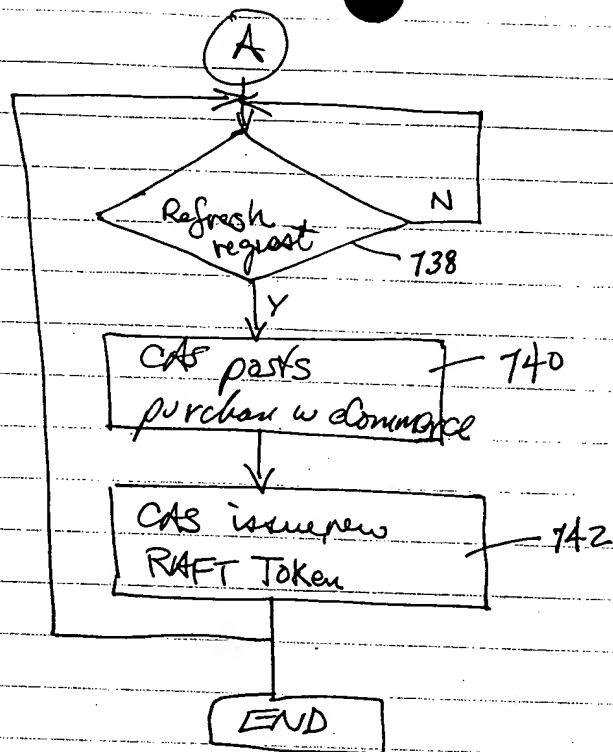 A
Refresh
request
N
738
Y
CAS posts
740
purchase w eCommerce
CAS issue new
RAFT Token
742
END